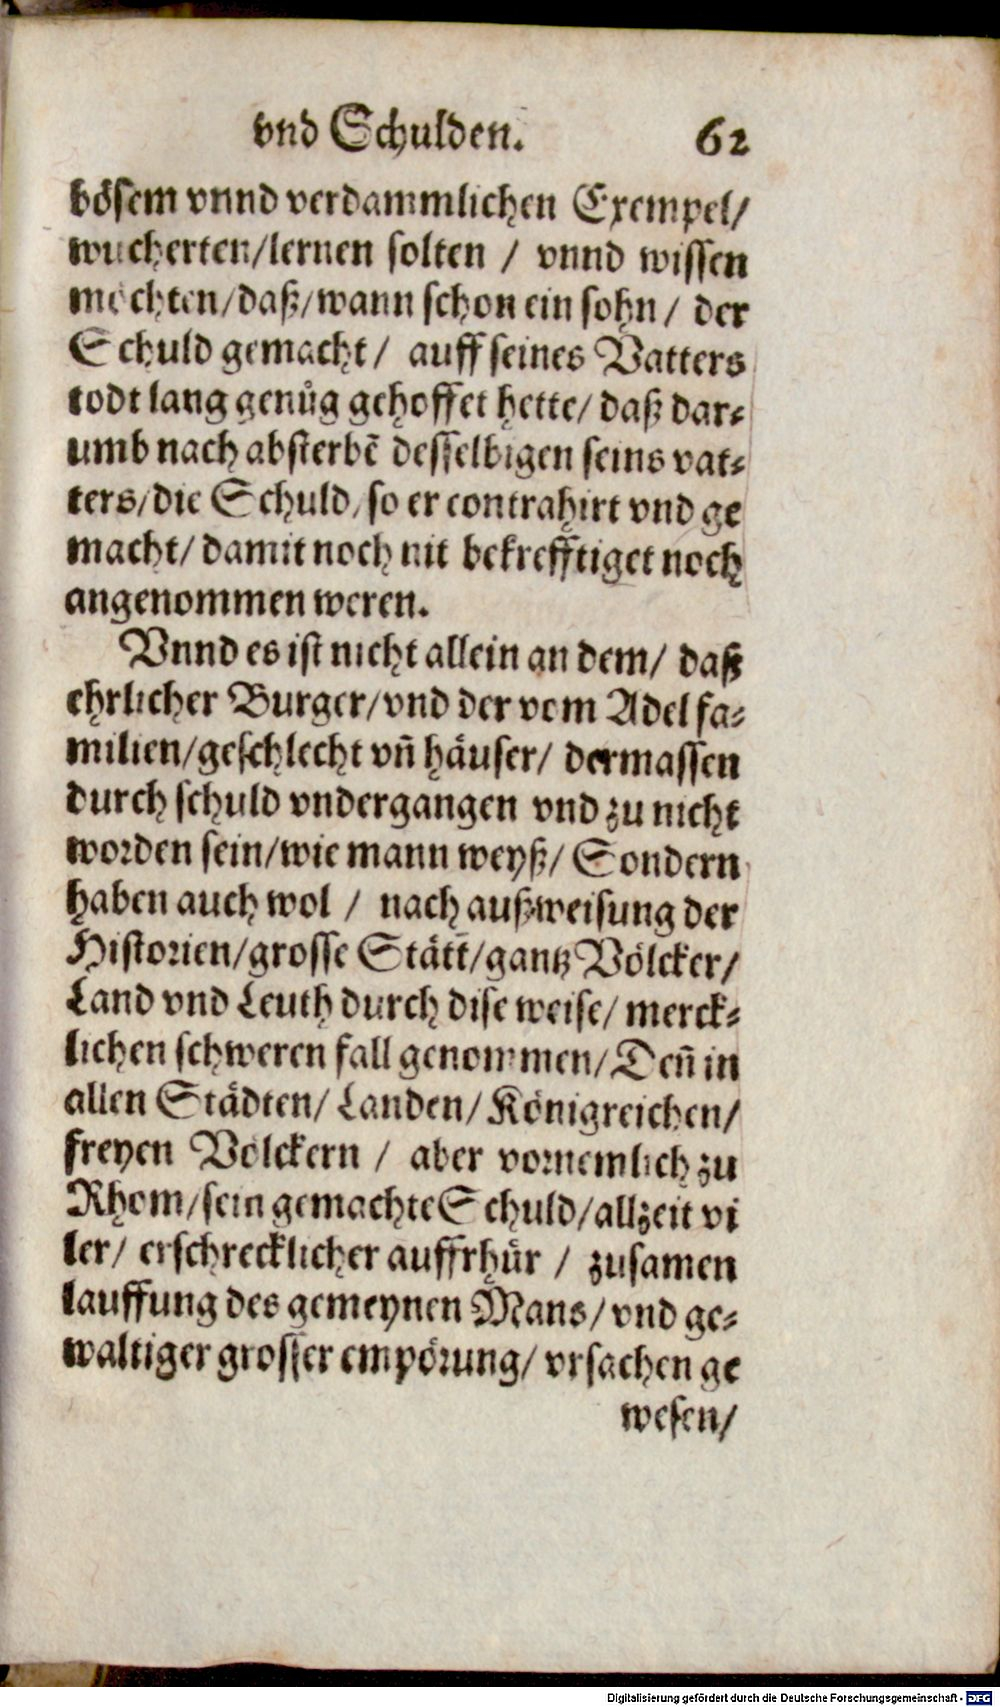 vnd Schulden. 62
bösem vnnd verdammlichen Exempel/
wucherten/lernen solten / vnnd wissen
möchten/daß/wann schon ein sohn/ der
Schuld gemacht/ auff seines Vatters
todt lang genůg gehoffet hette/ daß dar-
umb nach absterbē desselbigen seins vat-
ters/die Schuld/so er contrahirt vnd ge
macht/ damit noch nit bekrefftiget noch
angenommen weren.
Vnnd es ist nicht allein an dem/ daß
ehrlicher Burger/vnd der vom Adel fa-
milien/geschlecht vn̄ häuser/ dermassen
durch schuld vndergangen vnd zu nicht
worden sein/wie mann weyß/ Sondern
haben auch wol / nach außweisung der
Historien/grosse Stätt/gantz Völcker/
Land vnd Leuth durch dise weise/ merck-
lichen schweren fall genommen/Den̄ in
allen Städten/ Landen/ Königreichen/
freyen Völckern / aber vornemlich zu
Rhom/sein gemachte Schuld/allzeit vi
ler/ erschrecklicher auffrhůr / zusamen
lauffung des gemeynen Mans/ vnd ge-
waltiger grosser empörung/ vrsachen ge
wesen/
Digitalisierung gefördert durch die Deutsche Forschungsgemeinschaft - DFG